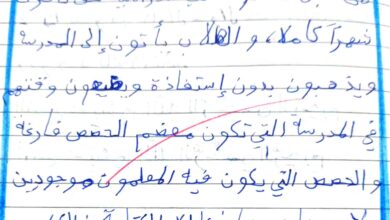 شهراً كاملا، و الطلاب يأتون إلى المدرسة
ويذهبون بدون إستفاذة ويضيعون وقتهم
في المدرسة التي تكون معضم الحصص فارغة
و الحصص التي يكون فيه المعلمون موجودين